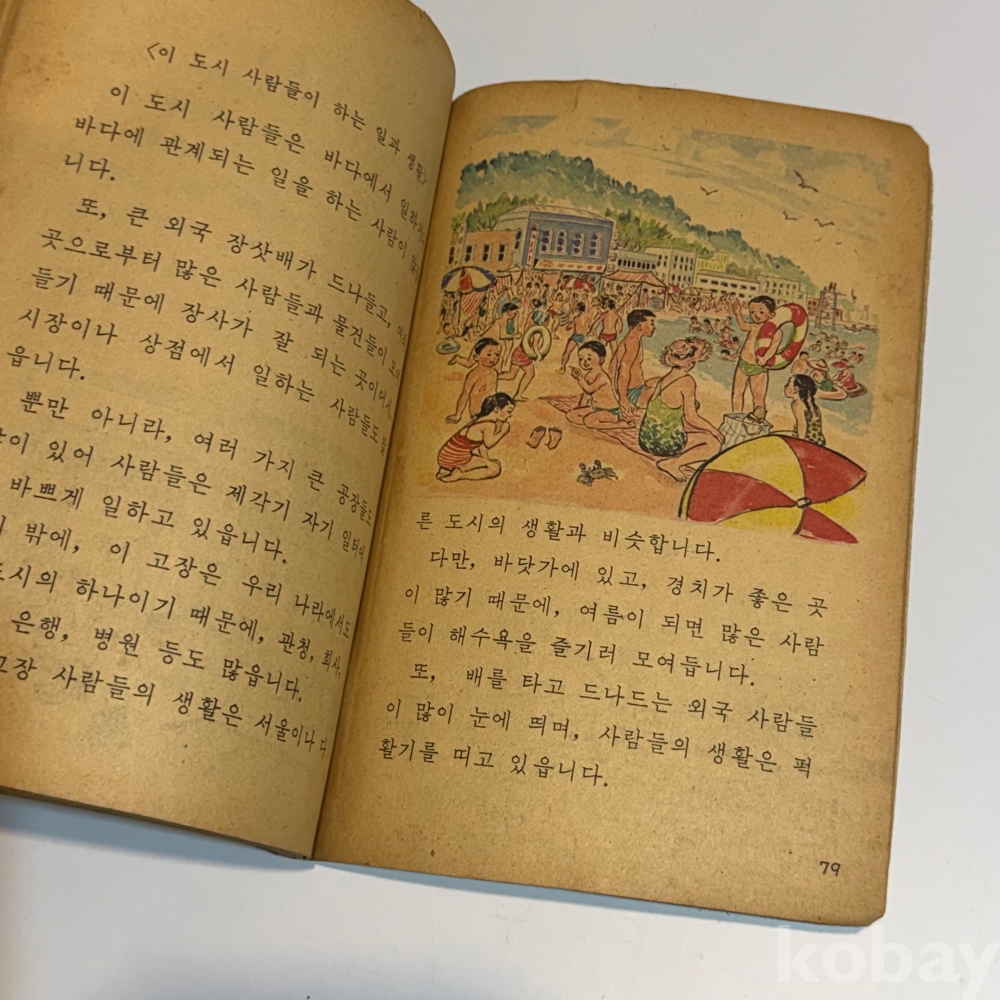 <이 도시 사람들이 하는 일과 생활>
이 도시 사람들은 바다에서 일하거
바다에 관계되는 일을 하는 사람이
니다.
또, 큰 외국 장삿배가 드나들고,
곳으로부터 많은 사람들과 물건들이
들기 때문에 장사가 잘 되는 곳이어서,
시장이나 상점에서 일하는 사람들도
읍니다.
뿐만 아니라, 여러 가지 큰 공장들도
있어 사람들은 제각기 자기 일터에
바쁘게 일하고 있읍니다.
밖에, 이 고장은 우리 나라에서도
도시의 하나이기 때문에, 관청, 회사,
은행, 병원 등도 많읍니다.
고장 사람들의 생활은 서울이나 다
른 도시의 생활과 비슷합니다.
다만, 바닷가에 있고, 경치가 좋은 곳
이 많기 때문에, 여름이 되면 많은 사람
들이 해수욕을 즐기러 모여듭니다.
또, 배를 타고 드나드는 외국 사람들
이 많이 눈에 띄며, 사람들의 생활은 퍽
활기를 띠고 있읍니다.
79
kobay